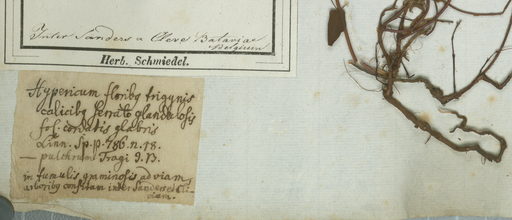 Inter Sanders a Cleve Bataviae
Belgium
Herb. Schmiedel.
Hypericum floribg trigynis
calicibg serrato glandulosis
fol: cordatis glabris
Linn. Sp. p. 786. n. 18.
— pulchrum Tragi J. B.
in tumulis graminosis ad viam
arboribg consitam inter Sanders et Cli-
viam.